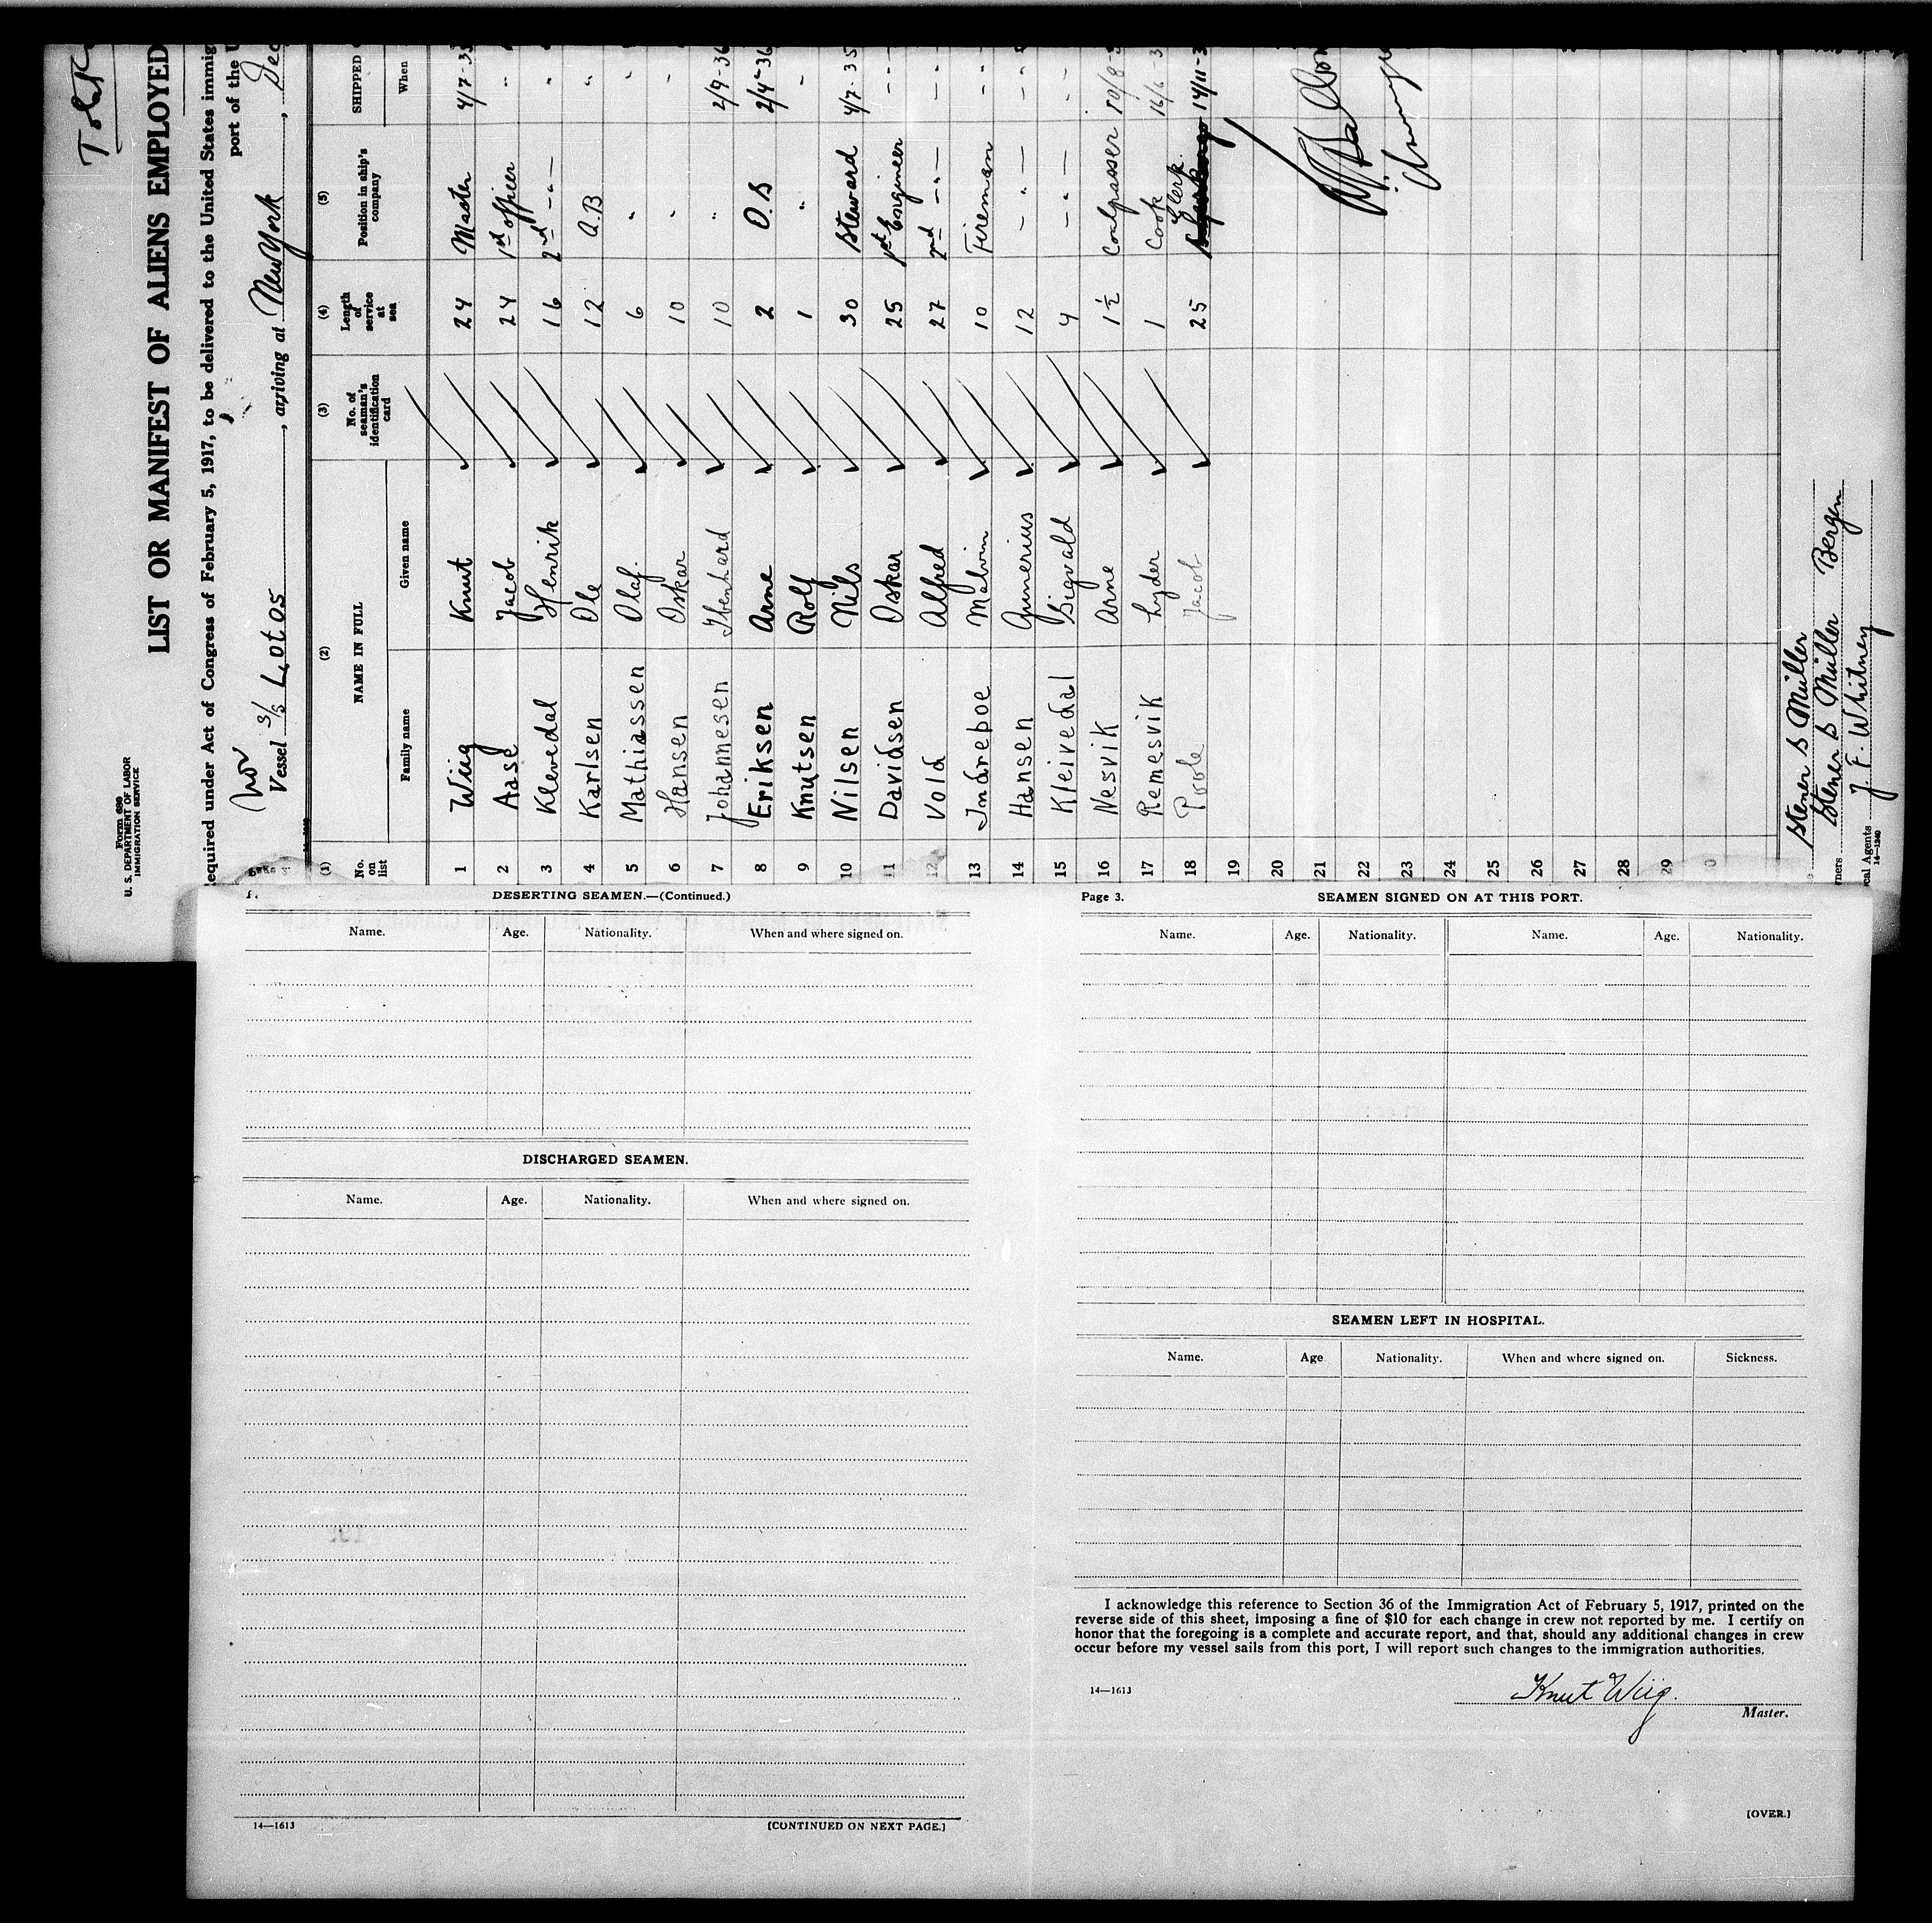 Form 680
U. S. DEPARTMENT OF LABOR
IMMIGRATION SERVICE
LIST OR MANIFEST OF ALIENS EMPLOYED
equired under Act of Congress of February 5, 1917, to be delivered to the United States immig
port of the U
Nor
Vessel S/S Lotos, arriving at New York, Dec
(1) (2) (3) (4) (5)
No. on list NAME IN FULL No. of seaman's identification card Length of service at sea Position in ship's company SHIPPED
Family name Given name When
1 Wiig Knut 24 Master 4/7-35
2 Aase Jacob 24 1st officer "
3 Klevedal Henrik 16 2nd -"- "
4 Karlsen Ole 12 A.B "
5 Mathiassen Olaf. 6 " "
6 Hansen Oskar 10 " "
7 Johannesen Ibenhard 10 " 2/9-36
8 Eriksen Arne 2 O.S 2/4-36
9 Knutsen Rolf 1 " "
10 Nilsen Nils 30 Steward 4/7-35
11 Davidsen Oskar 25 1st Engineer -"-
12 Vold Alfred 27 2nd -"- -"-
13 Indreboe Malvin 10 Fireman -"-
14 Hansen Gunerius 12 -"- -"-
15 Kleivedal Sigvald 4 -"- -"-
16 Nesvik Arne 1½ Coalpasser 10/8-3
17 Remesvik Lyder 1 Cook 16/6-3
18 Poole Jacob 25 Clerk 14/11-3
19
20
21
22
23
24
25
26
27
28
29
30
Stener S Müller
ners Stener S Müller Bergen
cal Agents J. F. Whitney
14—1240
DESERTING SEAMEN.—(Continued.)
Name. Age. Nationality. When and where signed on.
DISCHARGED SEAMEN.
Name. Age. Nationality. When and where signed on.
14—1613 [CONTINUED ON NEXT PAGE.]
Page 3. SEAMEN SIGNED ON AT THIS PORT.
Name. Age. Nationality. Name. Age. Nationality.
SEAMEN LEFT IN HOSPITAL.
Name. Age Nationality. When and where signed on. Sickness.
I acknowledge this reference to Section 36 of the Immigration Act of February 5, 1917, printed on the
reverse side of this sheet, imposing a fine of $10 for each change in crew not reported by me. I certify on
honor that the foregoing is a complete and accurate report, and that, should any additional changes in crew
occur before my vessel sails from this port, I will report such changes to the immigration authorities.
14—1613
Knut Wiig.
Master.
[OVER.]